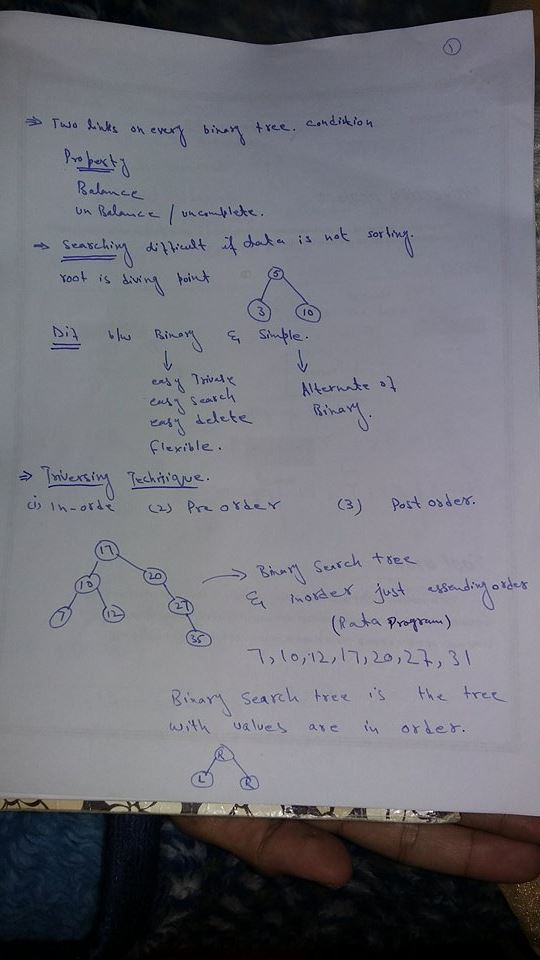 1
⇒ Two links on every binary tree. condition
Property
Balance
un Balance / uncomplete.
⇒ Searching difficult if data is not sorting.
root is diving point
5
3 10
Dif b/w Binary & Simple.
easy Trivase
easy Search
easy delete
flexible.
Alternate of
Binary.
⇒ Triversing Technique.
(1) In-orde (2) Pre order (3) Post order.
17
10 20
7 12 27
35
Binary Search tree
& inorder just assending order
(Rata program)
7, 10, 12, 17, 20, 27, 31
Binary Search tree is the tree
with values are in order.
R
L R